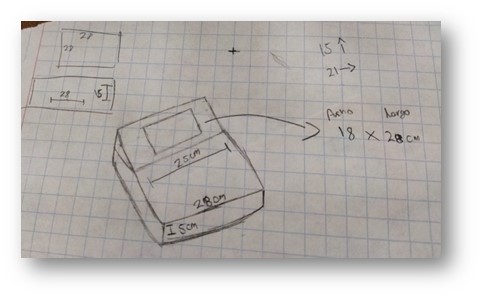 28
28
28
15
15 ↑
21 →
Ancho Largo
18 x 28 cm
25cm
28cm
5cm